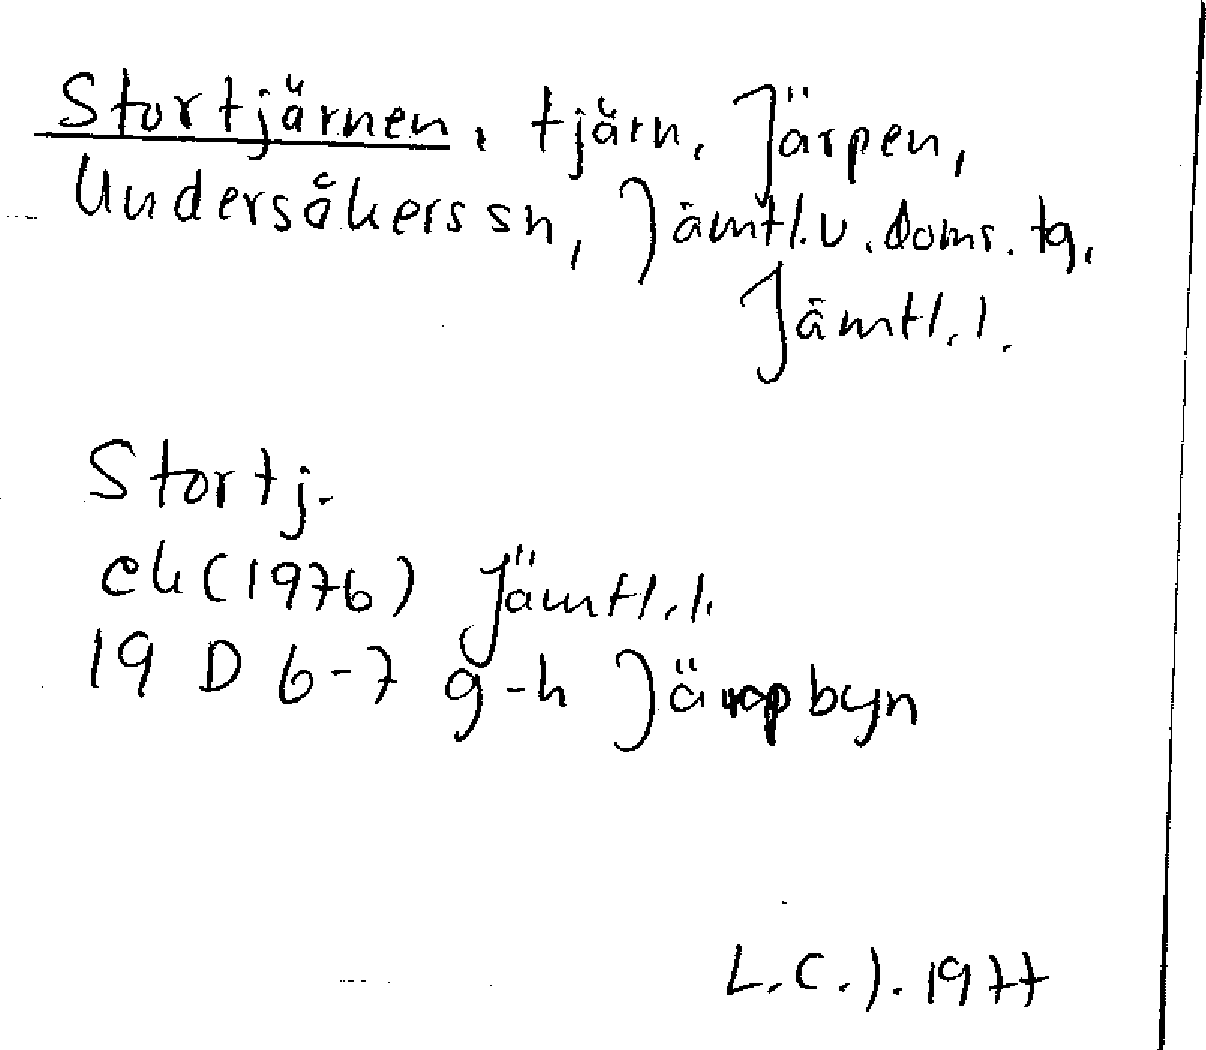 Stortjärnen, tjärn, Järpen,
Undersåkers sn, Jämtl.v.doms.tg,
Jämtl.l.
Stortj.
ek (1976) Jämtl.l.
19 D 6-7 g-h Järpbyn
L.C.J. 1977